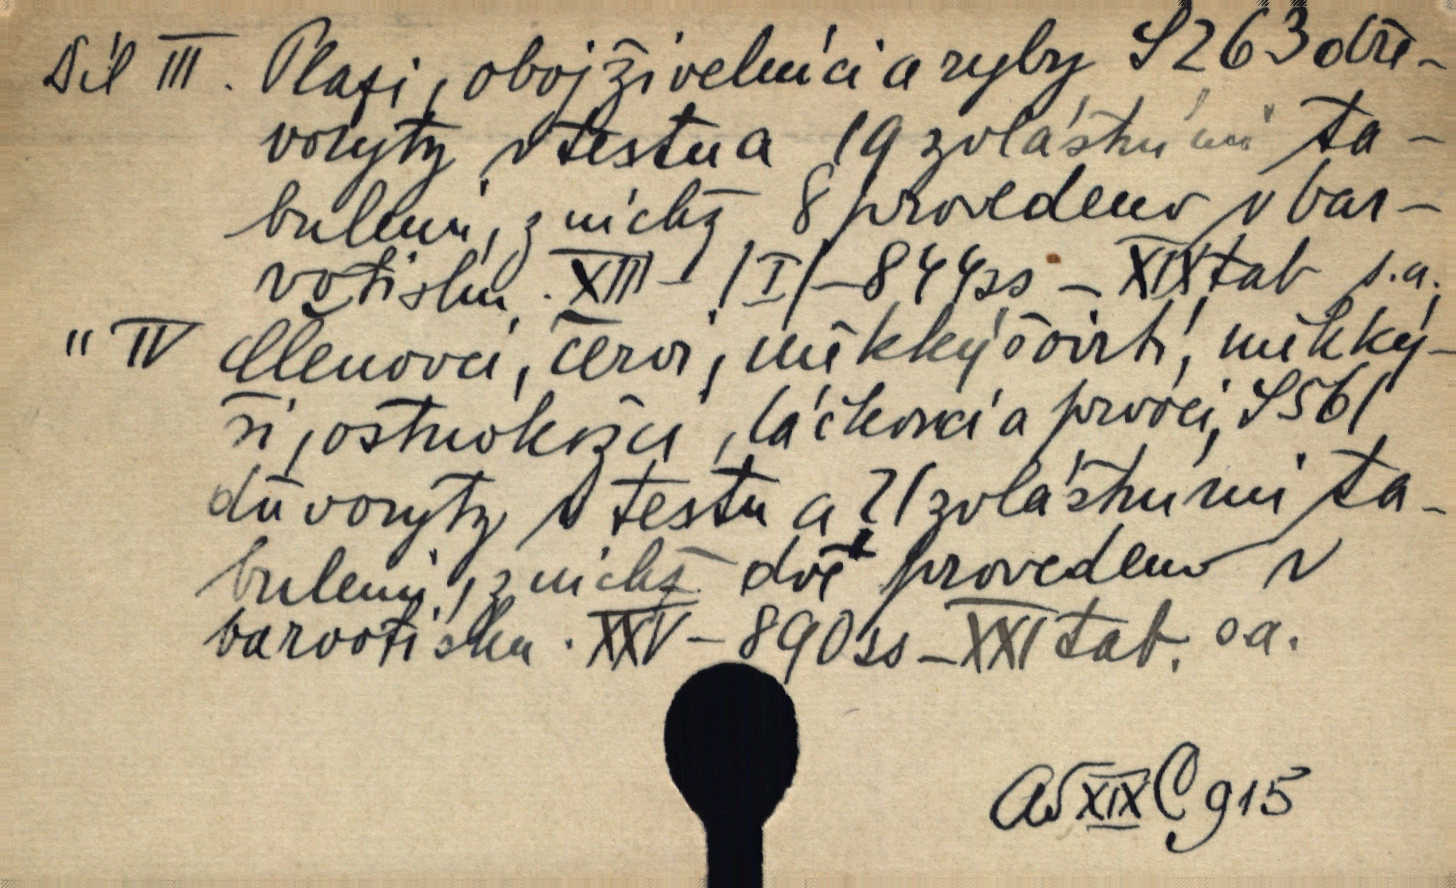 Díl III. Plazi, obojživelníci a ryby S 263 dře-
voryty v testu a 19 zvláštními ta-
bulemi, z nichž 8 provedeno v bar-
votisku. XIII - /I/ - 844 ss - XIX tab s.a.
" IV Členovci, červi, měkkýšovití, měkký-
ši, ostnokožci, láčkovci a prvoci, S 561
dřevoryty v testu a 21 zvláštními ta-
bulemi, z nichž dvě provedeno v
barvotisku. XXV - 890 ss - XXI tab. s.a.
XIX C 915